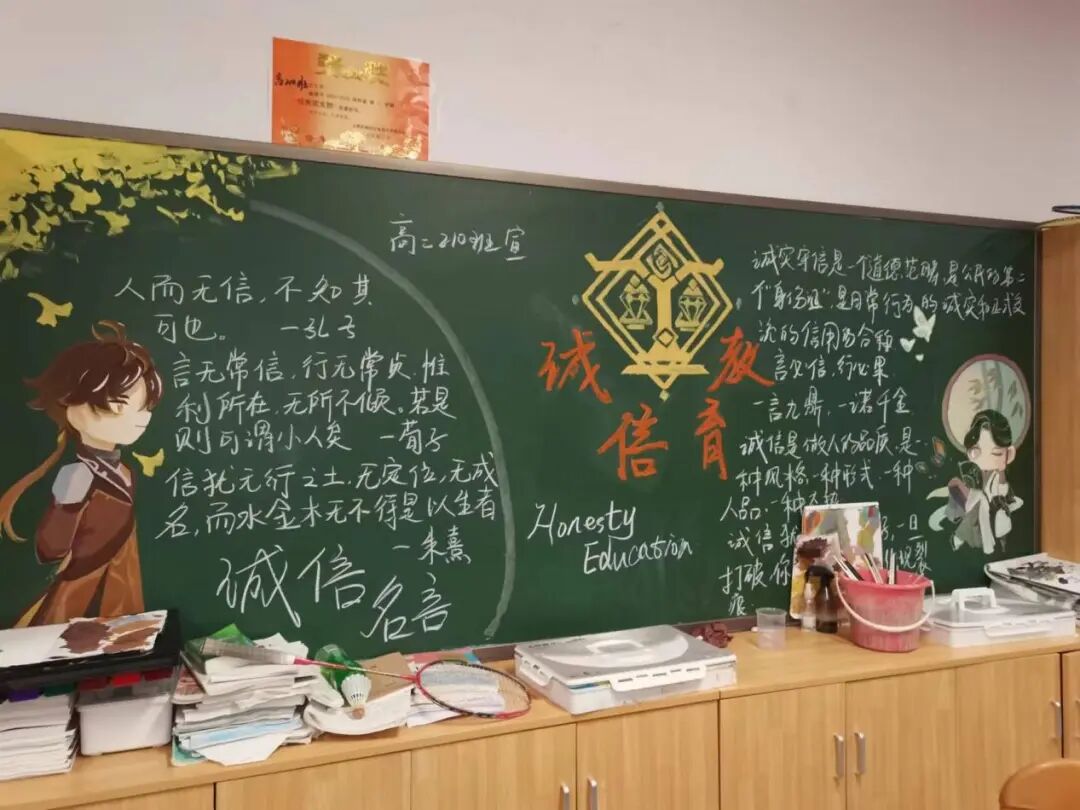 奖状
高210班
高二210班宣
人而无信，不知其
可也。 —孔子
言无常信，行无常贞，惟
利所在，无所不倾。若是
则可谓小人矣 —荀子
信犹五行之土，无定位，无成
名，而水金木无不得是以生者
—朱熹
诚信
名言
诚信
教育
Honesty
Education
诚实守信是一个道德范畴，是公民的第二
个“身份证”，是日常行为的诚实和正式交
流的信用的合称
言必信，行必果
一言九鼎，一诺千金
诚信是做人的品质，是一
种风格一种形式一种
人品，一种
诚信 一旦
打破，你 现裂
痕